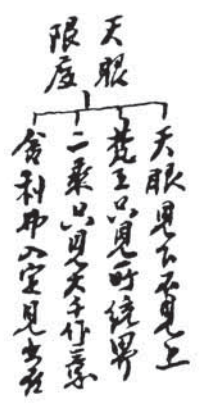 天眼
限度
天眼見下不見上
梵王只見所統界
二乘只見大千作業
舍利弗入定見